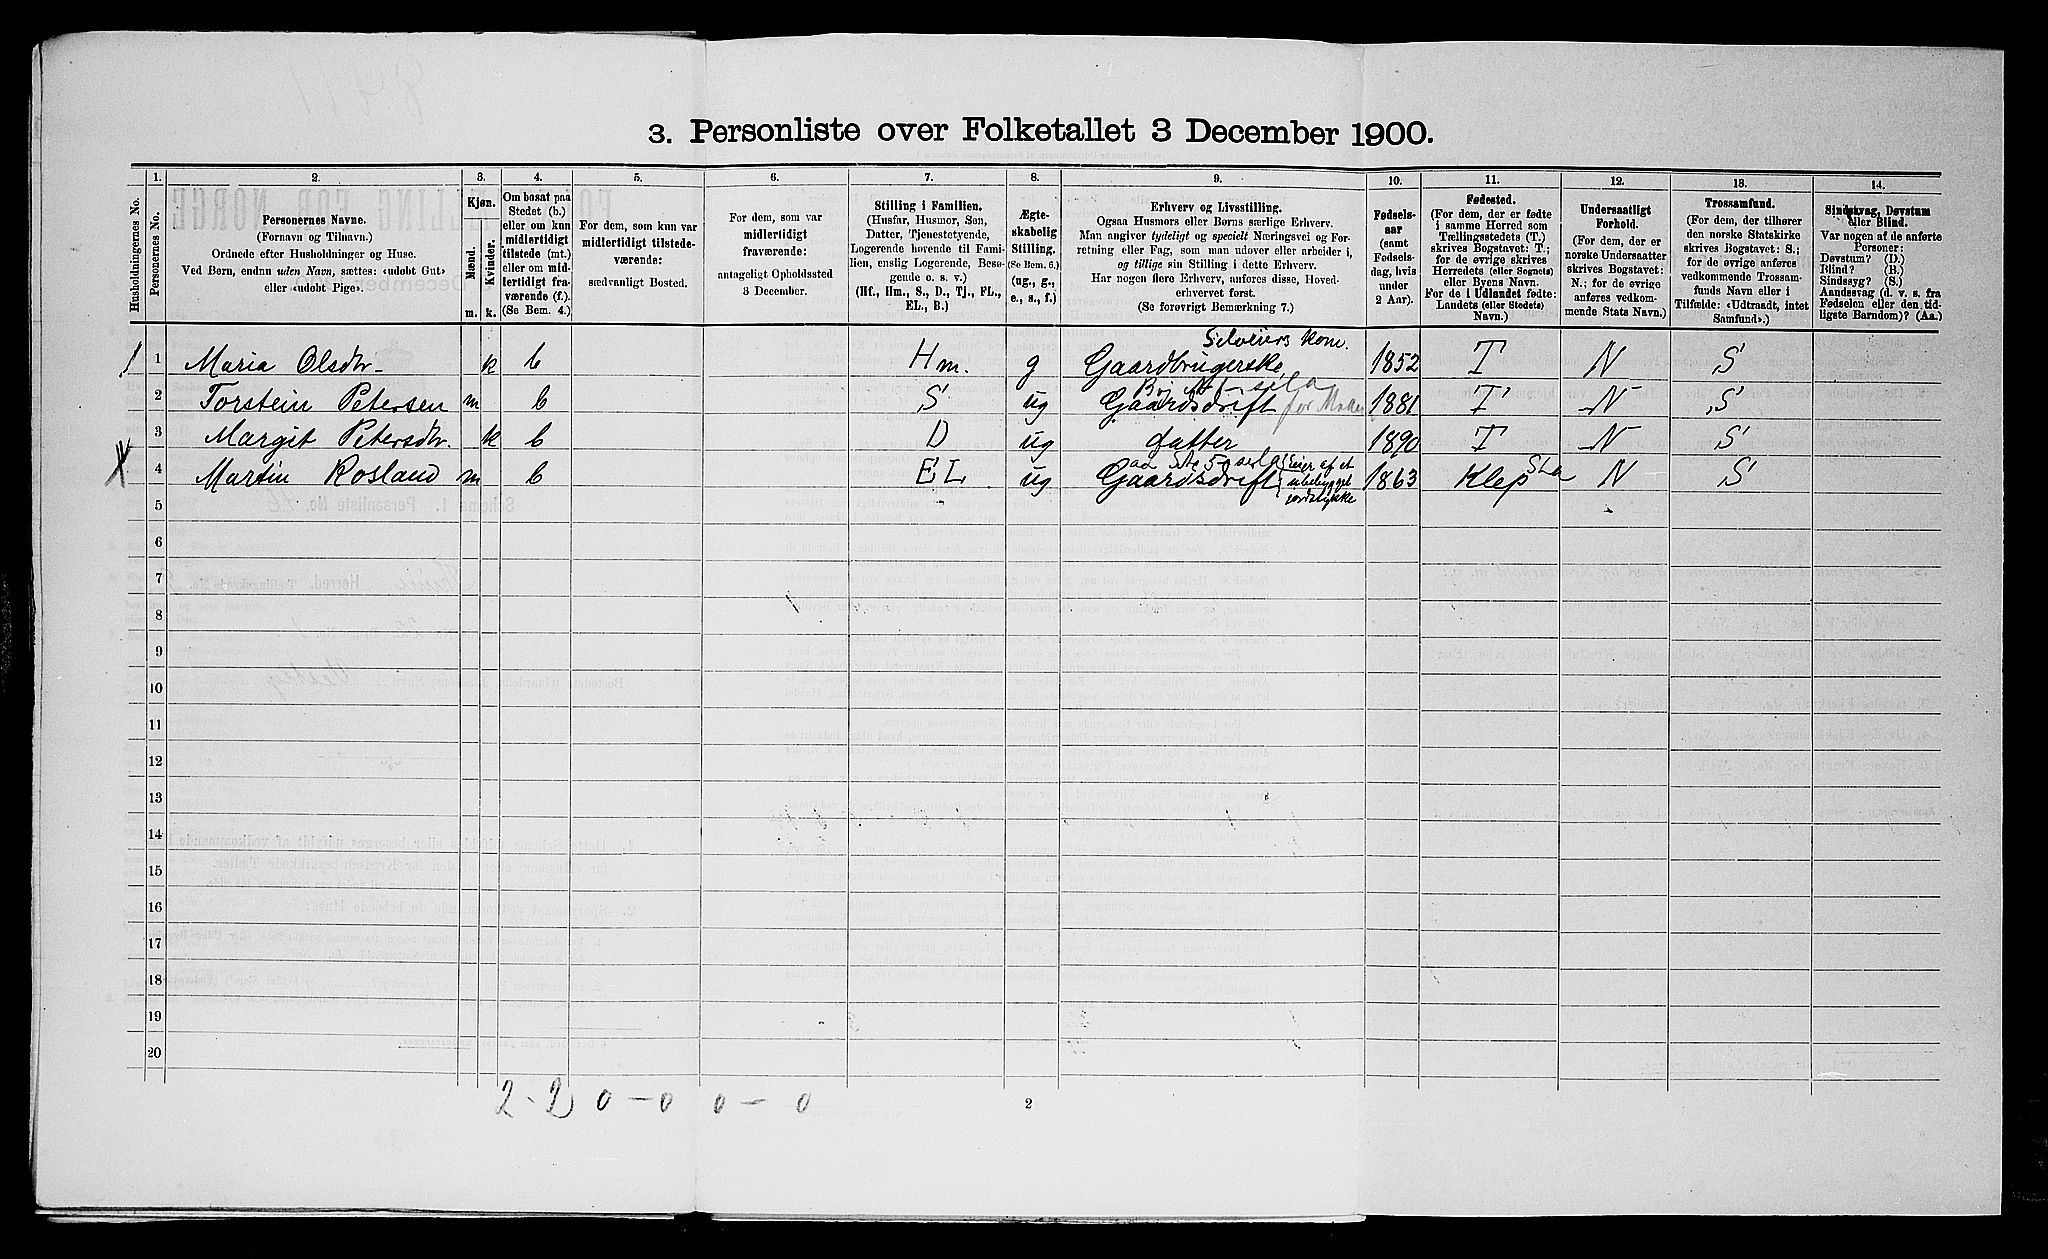 3. Personliste over Folketallet 3 December 1900.
1. 2. 3. 4. 5. 6. 7. 8. 9. 10. 11. 12. 13. 14.
Husholdningernes No.
Personernes No.
Personernes Navne.
(Fornavn og Tilnavn.)
Ordnede efter Husholdninger og Huse.
Ved Børn, endnu uden Navn, sættes: «udøbt Gut»
eller «udøbt Pige».
Kjøn.
Mænd.
Kvinder.
m. k.
Om bosat paa
Stedet (b.)
eller om kun
midlertidigt
tilstede (mt.)
eller om mid-
lertidigt fra-
værende (f.).
(Se Bem. 4.)
For dem, som kun var
midlertidigt tilstede-
værende:
sædvanligt Bosted.
For dem, som var
midlertidigt
fraværende:
antageligt Opholdssted
3 December.
Stilling i Familien.
(Husfar, Husmor, Søn,
Datter, Tjenestetyende,
Logerende hørende til Fami-
lien, enslig Logerende, Besø-
gende o. s. v.)
(Hf., Hm., S., D., Tj., FL.,
EL., B.)
Ægte-
skabelig
Stilling.
(Se Bem. 6.)
(ug., g.,
e., s., f.)
Erhverv og Livsstilling.
Ogsaa Husmors eller Børns særlige Erhverv.
Man angiver tydeligt og specielt Næringsvei og For-
retning eller Fag, som man udøver eller arbeider i,
og tillige sin Stilling i dette Erhverv.
Har nogen flere Erhverv, anføres disse, Hoved-
erhvervet først.
(Se forøvrigt Bemærkning 7.)
Fødsels-
aar
(samt
Fødsels-
dag, hvis
under
2 Aar).
Fødested.
(For dem, der er fødte
i samme Herred som
Tællingsstedets (T.)
skrives Bogstavet: T;
for de øvrige skrives
Herredets (eller Sognets)
eller Byens Navn.
For de i Udlandet fødte:
Landets (eller Stedets)
Navn.)
Undersaatligt
Forhold.
(For dem, der er
norske Undersaatter
skrives Bogstavet:
N.; for de øvrige
anføres vedkom-
mende Stats Navn.)
Trossamfund.
(For dem, der tilhører
den norske Statskirke
skrives Bogstavet: S.;
for de øvrige anføres
vedkommende Trossam-
funds Navn eller i
Tilfælde: «Udtraadt, intet
Samfund».)
Sindssvag, Døvstum
eller Blind.
Var nogen af de anførte
Personer:
Døvstum? (D.)
Blind? (B.)
Sindssyg? (S.)
Aandssvag (d. v. s. fra
Fødselen eller den tid-
ligste Barndom)? (Aa.)
Selveiers kone.
1 Maria Olsdtr. k b Hm. g Gaardbrugerske 1852 T N S
2 Torstein Petersen m b S ug Gaardsdrift for Moder 1881 T N S
3 Margit Petersdtr. k b D ug datter 1890 T N S
4 Martin Rosland m b EL ug Gaardsdrift Eier af et
ubebygget
jordstykke 1863 Klep Sta N S
5
6
7
8
9
10
11
12
13
14
15
16
17
18
19
20
2 - 2 0 - 0 0 - 0
2